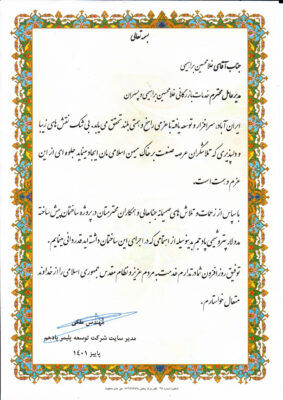 بسمه تعالی
جناب آقای غلامحسین براهیمی
مدیرعامل محترم خدمات بازرگانی غلامحسین براهیمی و پسران
ایران آباد، سرافراز و توسعه یافته با عزمی راسخ و همتی بلند تحقق می یابد. بی شک نقش های زیبا
و دلپذیری که تلاشگران عرصه صنعت بر خاک میهن اسلامی مان ایجاد مینمایند جلوه ای از این
عزم و همت است.
با سپاس از زحمات و تلاش های صمیمانه جنابعالی و همکاران محترمتان در پروژه ساختمان پیش ساخته
مدولار پتروشیمی پادجم بدینوسیله از اهتمامی که در اجرای این ساختمان داشته اید قدردانی مینمایم.
توفیق روزافزون شما در تداوم خدمت به مردم عزیز و نظام مقدس جمهوری اسلامی را از خداوند
متعال خواستارم.
مهندس ملکی
مدیر سایت شرکت توسعه پلیمر پادجم
پاییز ۱۴۰۱